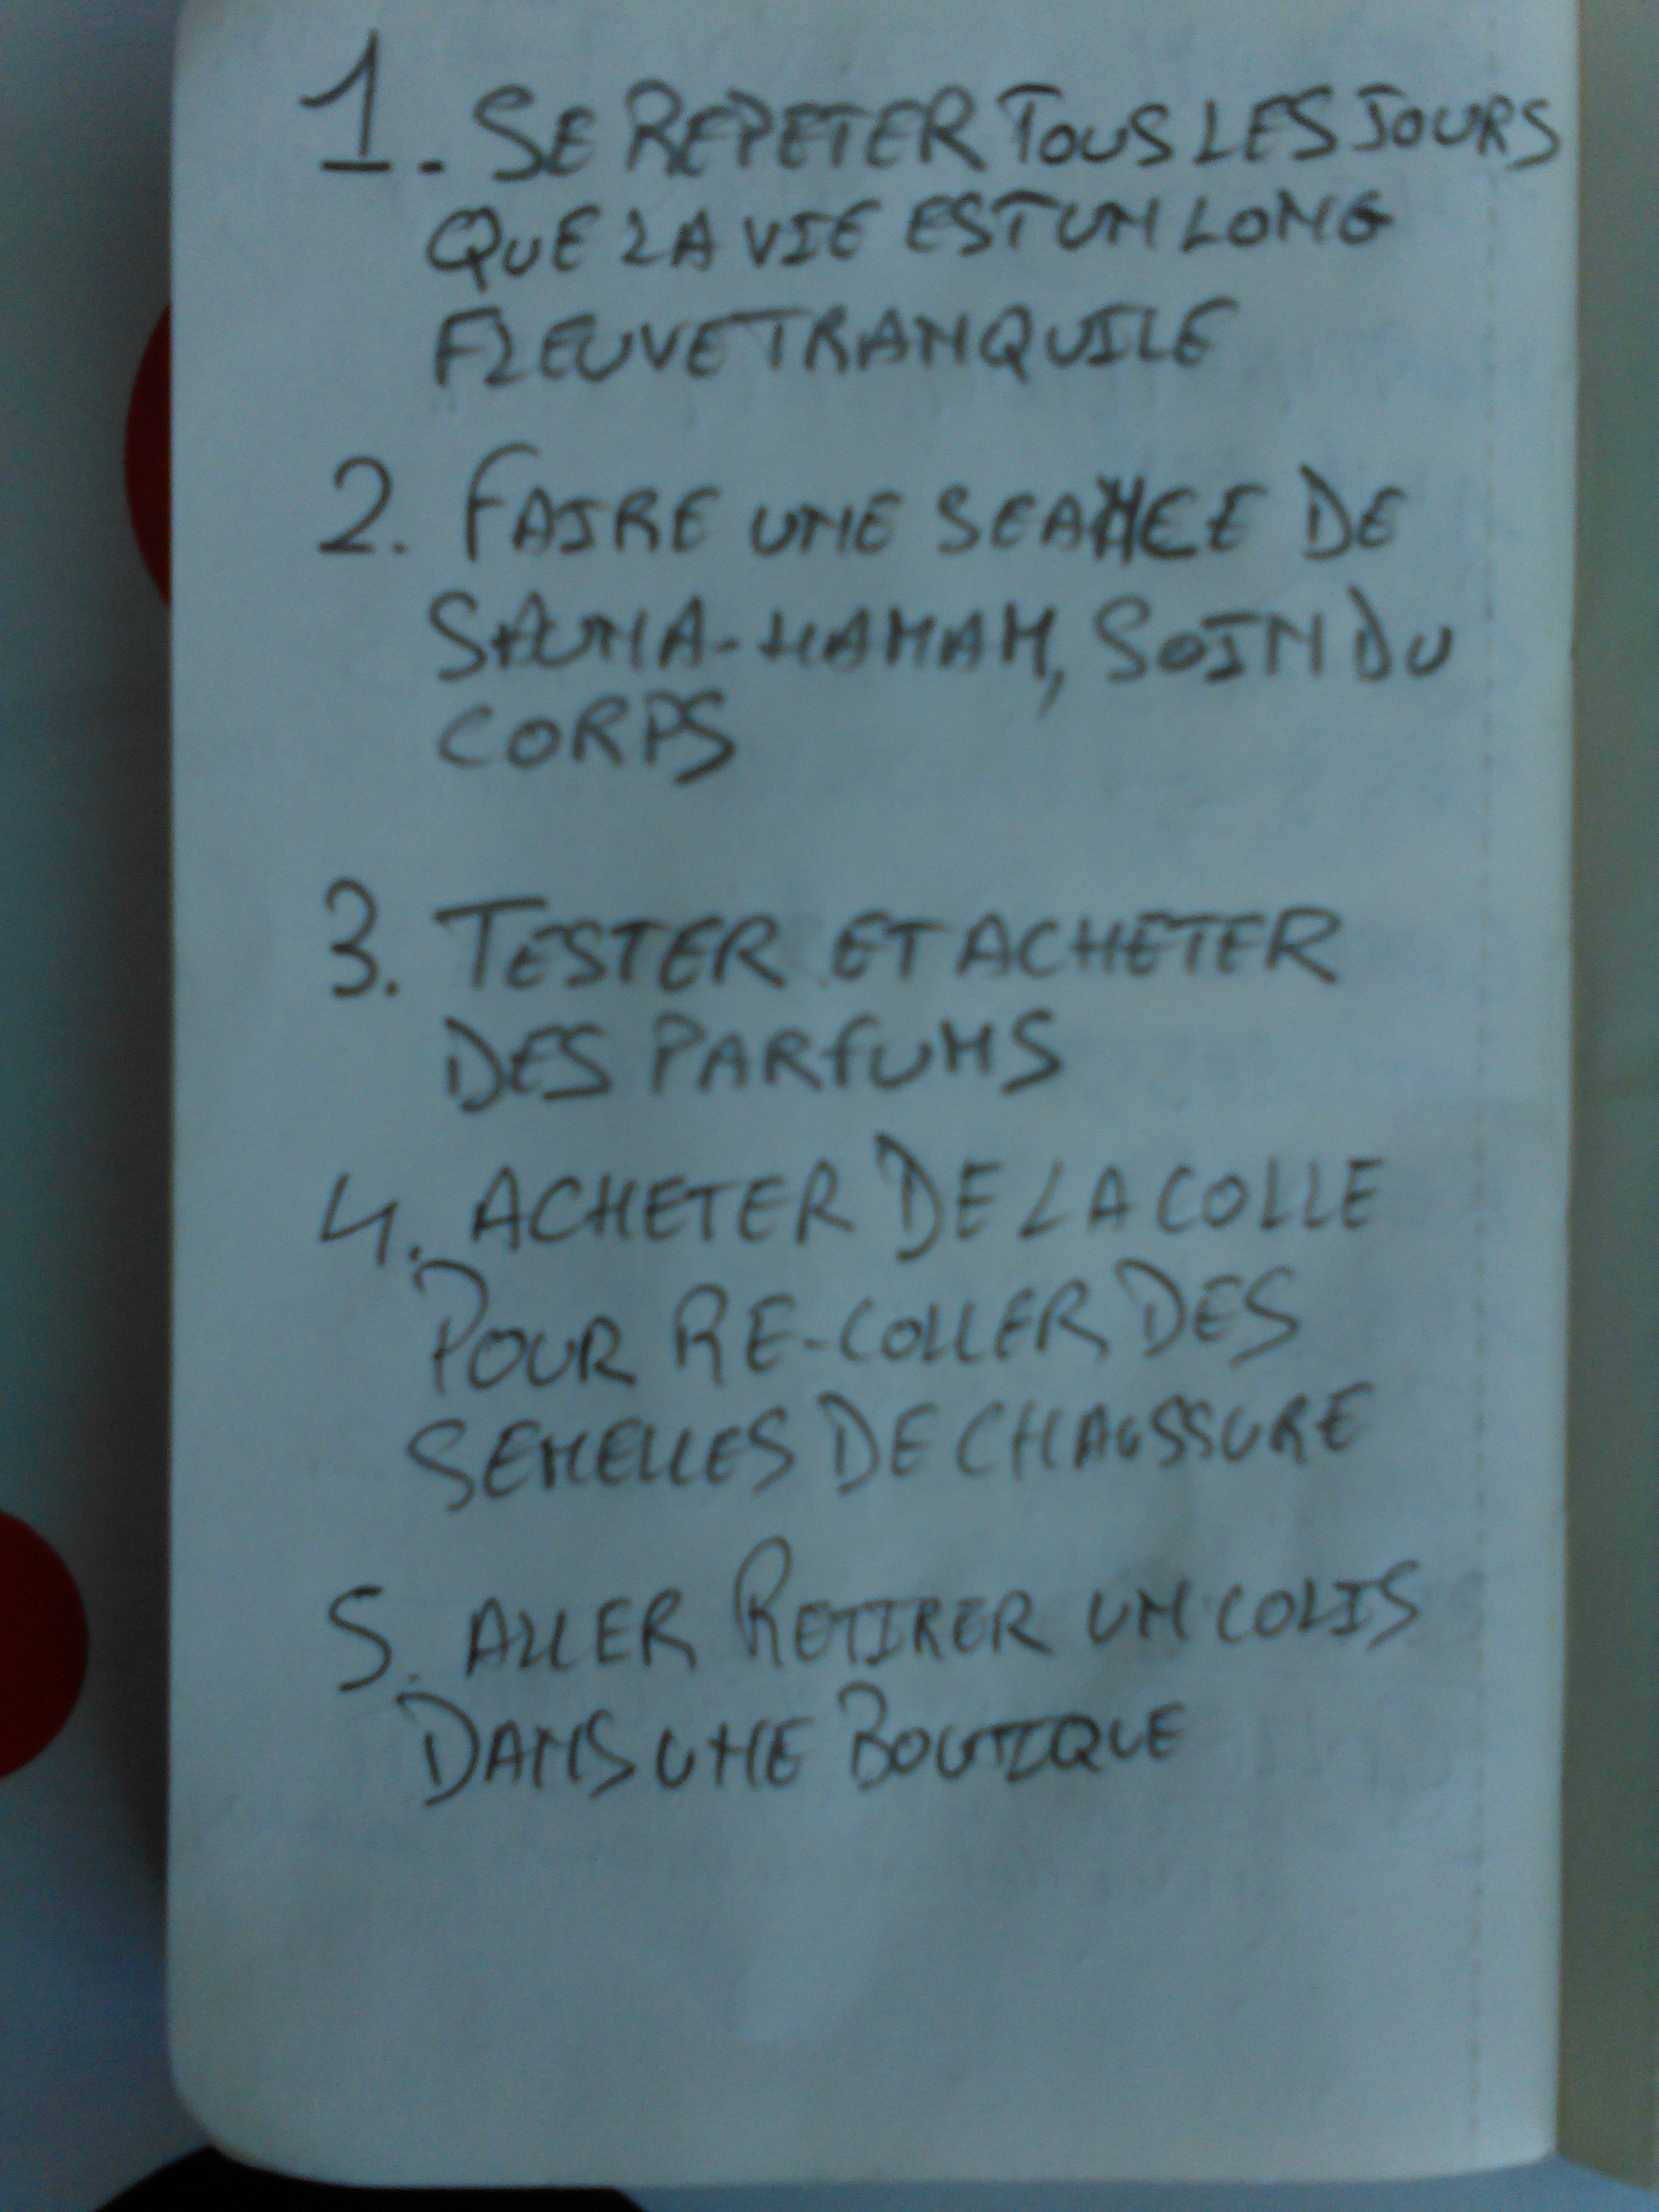 1. SE REPETER TOUS LES JOURS
QUE LA VIE EST UN LONG
FLEUVE TRANQUILE
2. FAIRE UNE SEANCE DE
SAUNA-HAMAM, SOIN DU
CORPS
3. TESTER ET ACHETER
DES PARFUMS
4. ACHETER DE LA COLLE
POUR RE-COLLER DES
SEMELLES DE CHAUSSURE
5. ALLER RETIRER UN COLIS
DANS UNE BOUTIQUE